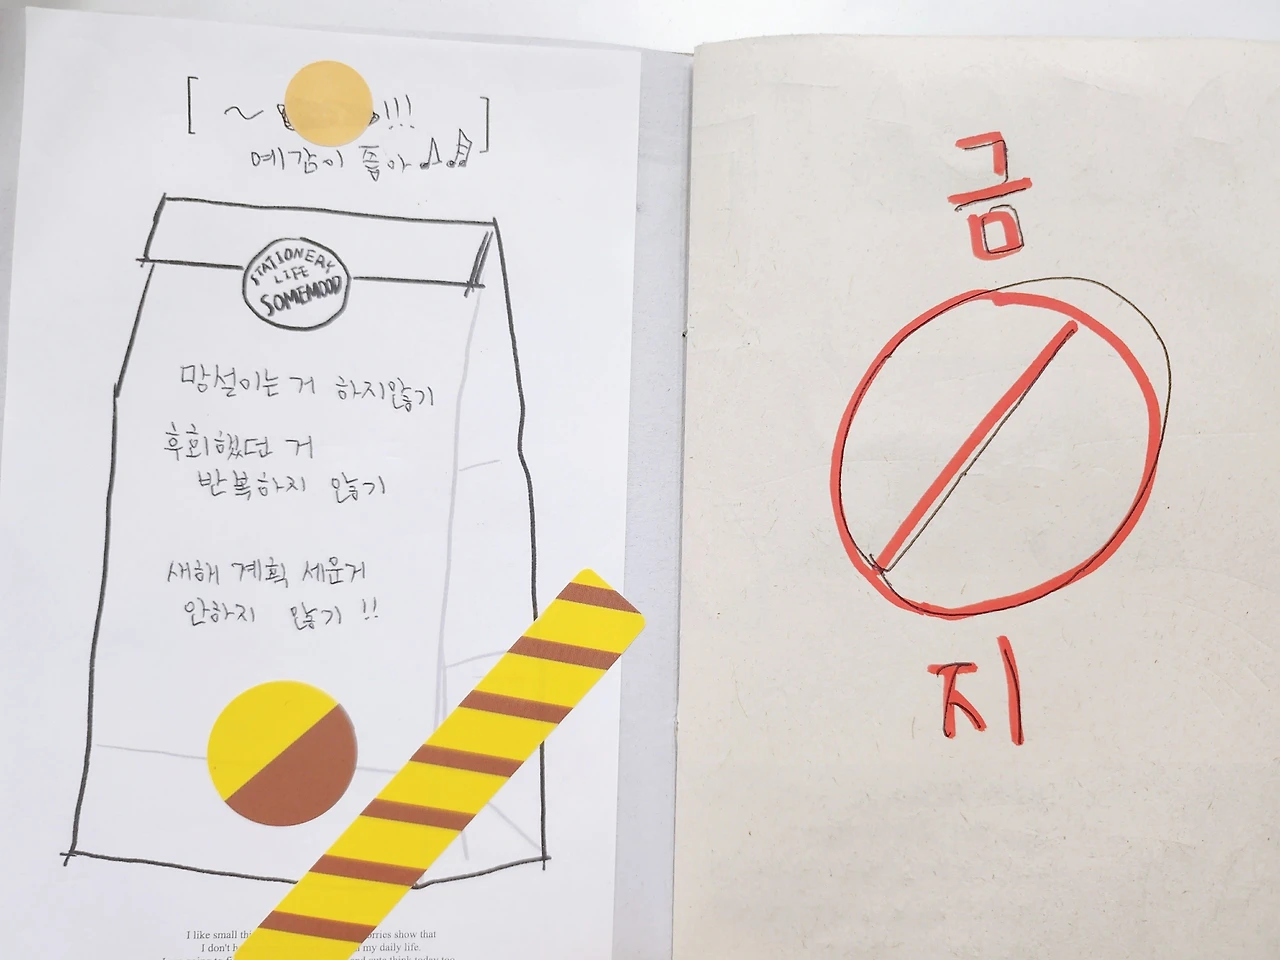 [ ~ !!!
예감이 좋아 ♪♬ ]
STATIONERY
LIFE
SOMEMOOD
망설이는 거 하지않기
후회했던 거
반복하지 않기
새해 계획 세운거
안하지 않기 !!
I like small show that
I don't my daily life.
금
지